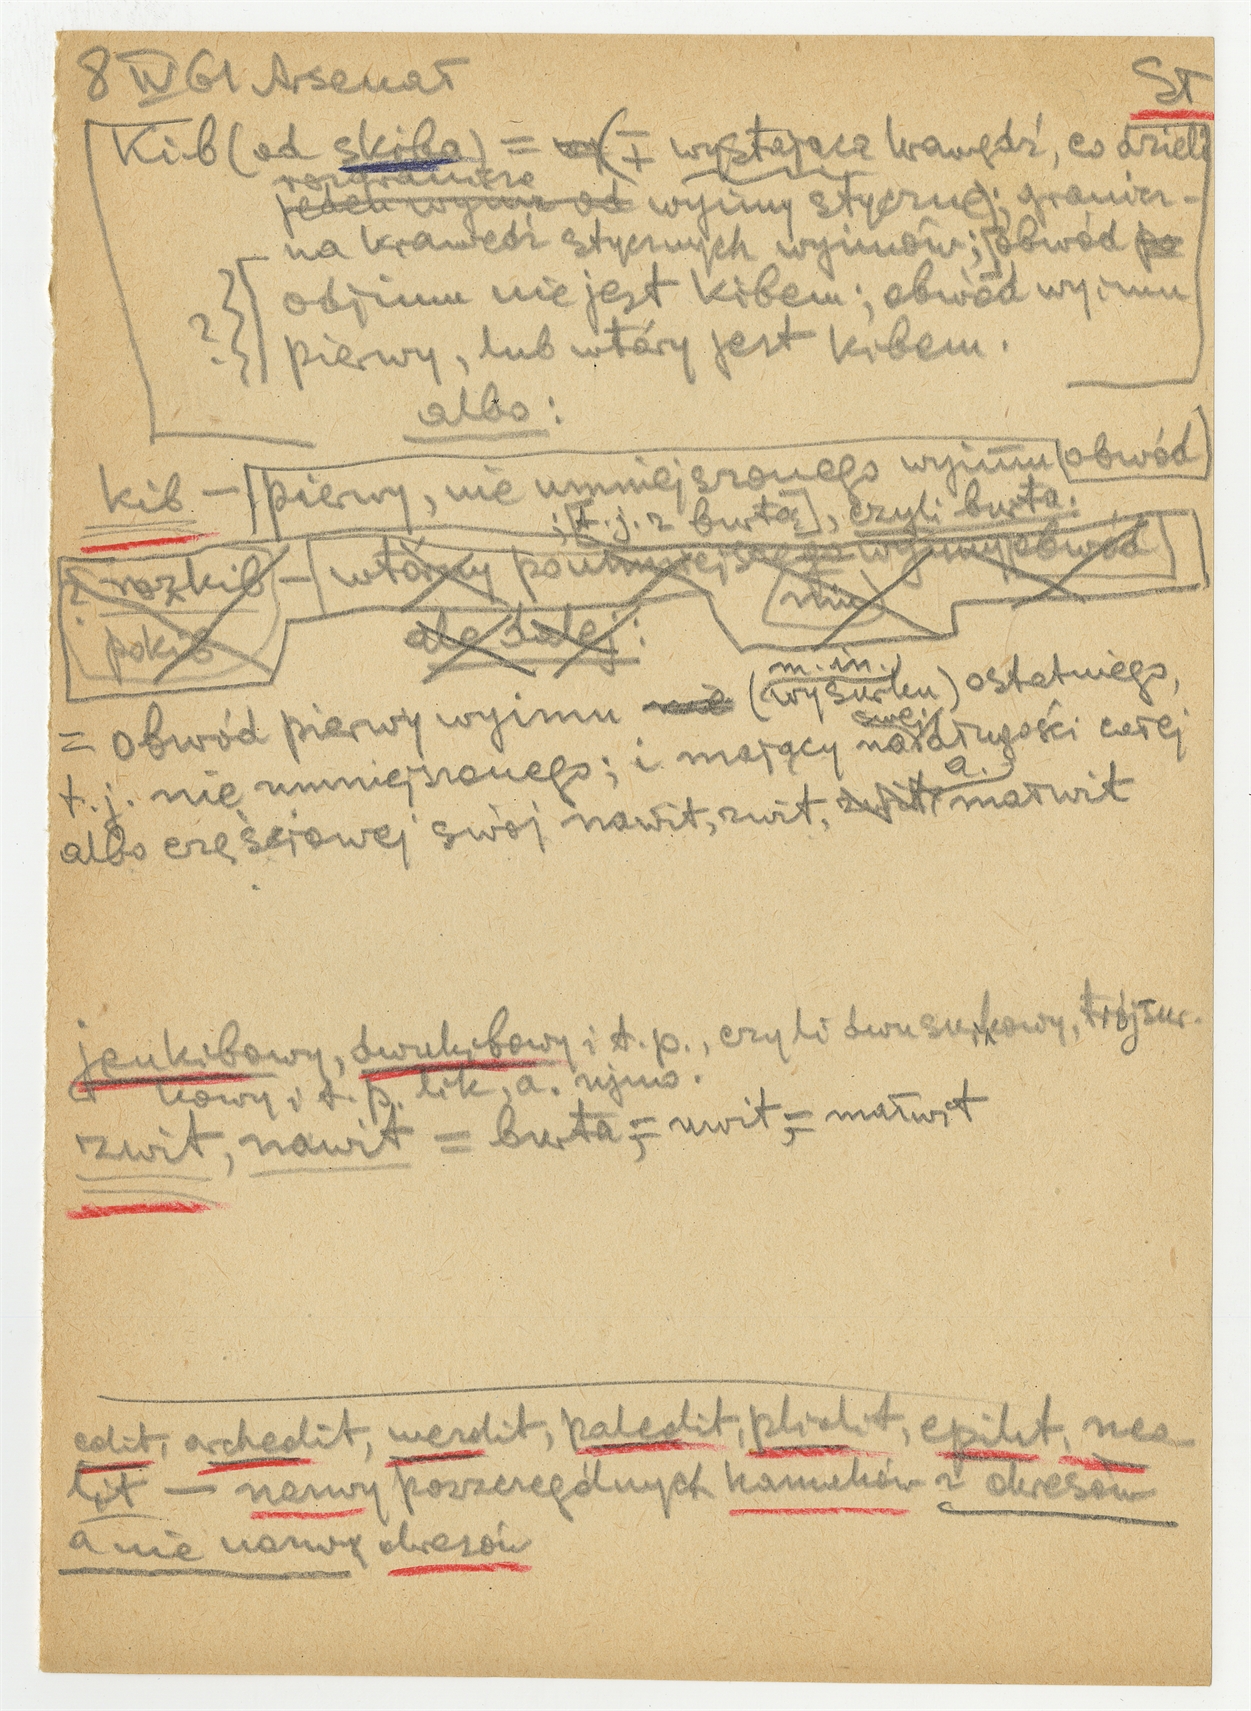 8 IV 61 Arsenał
St
Kib (od skiba) = (± wystająca krawędź, co dzieli
rozgranicza
jeden wyim od wyimy styczne); granicz-
na krawędź stycznych wyimów; obwód po
odjimu nie jest kibem; obwód wyimu
? pierwy, lub wtóry jest kibem.
albo:
kib — pierwy, nie umniejszonego wyimu obwód
; [t.j. z burtą], czyli burta.
? rozkib — wtórny poumniejszego wyimy obwód
pokib ale dalej:
(m.in.
= obwód pierwy wyimu wysurku) ostatniego,
swej
t.j. nie umniejszonego; i mający na długości całej
a.
albo częściowej swój nawit, zwit, małwit
jenkibowy, dwukibowy i t.p., czyli dwusurkowy, trójsur-
kowy i t.p. lik, a. ujmo.
zwit, nawit = burta; = uwit; = małwit
edit, archedit, mezdit, paledit, plidit, epilit, neo-
lit — nazwy poszczególnych kamuków z okresów
a nie nazwy okresów